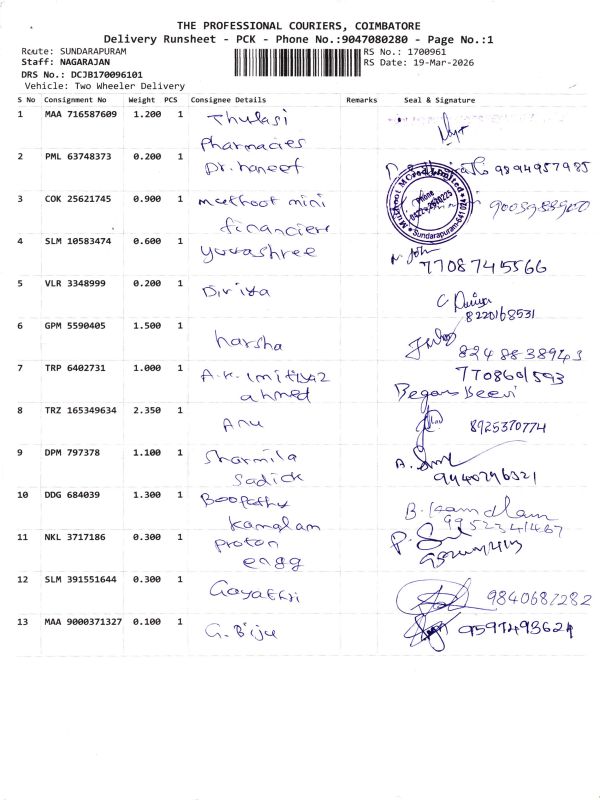 THE PROFESSIONAL COURIERS, COIMBATORE
Delivery Runsheet - PCK - Phone No.:9047080280 - Page No.:1
Route: SUNDARAPURAM RS No.: 1700961
Staff: NAGARAJAN RS Date: 19-Mar-2026
DRS No.: DCJB170096101
Vehicle: Two Wheeler Delivery
S No Consignment No Weight PCS Consignee Details Remarks Seal & Signature
1 MAA 716587609 1.200 1 Thulasi
Pharmacies
2 PML 63748373 0.200 1 Dr. haneef 9894957985
3 COK 25621745 0.900 1 muthoot mini
financiers
Muthoot MCred Limited
Phone
0422-2670225
Sundarapuram-641 024
4 SLM 10583474 0.600 1 yuvashree N. John
7708745566
5 VLR 3348999 0.200 1 Diviya C Diviya
8220168531
6 GPM 5590405 1.500 1 harsha
8248838943
7 TRP 6402731 1.000 1 A.K. imitiyaz 7708601593
ahmed Begam Beevi
8 TRZ 165349634 2.350 1 Anu 8925370774
9 DPM 797378 1.100 1 Sharmila
Sadick 9440796321
10 DDG 684039 1.300 1 Boopathy
Kamalam 9952341467
11 NKL 3717186 0.300 1 proton
engg
12 SLM 391551644 0.300 1 Gayathri 9840687282
13 MAA 9000371327 0.100 1 G. Biju 9597493624